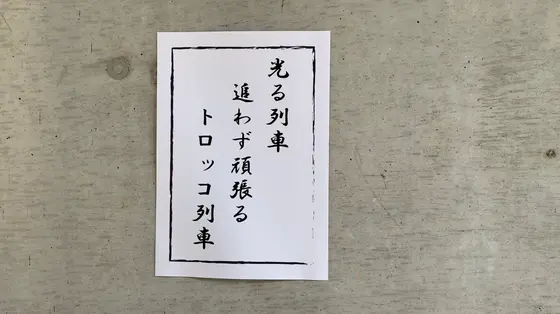 光る列車
追わず頑張る
トロッコ列車